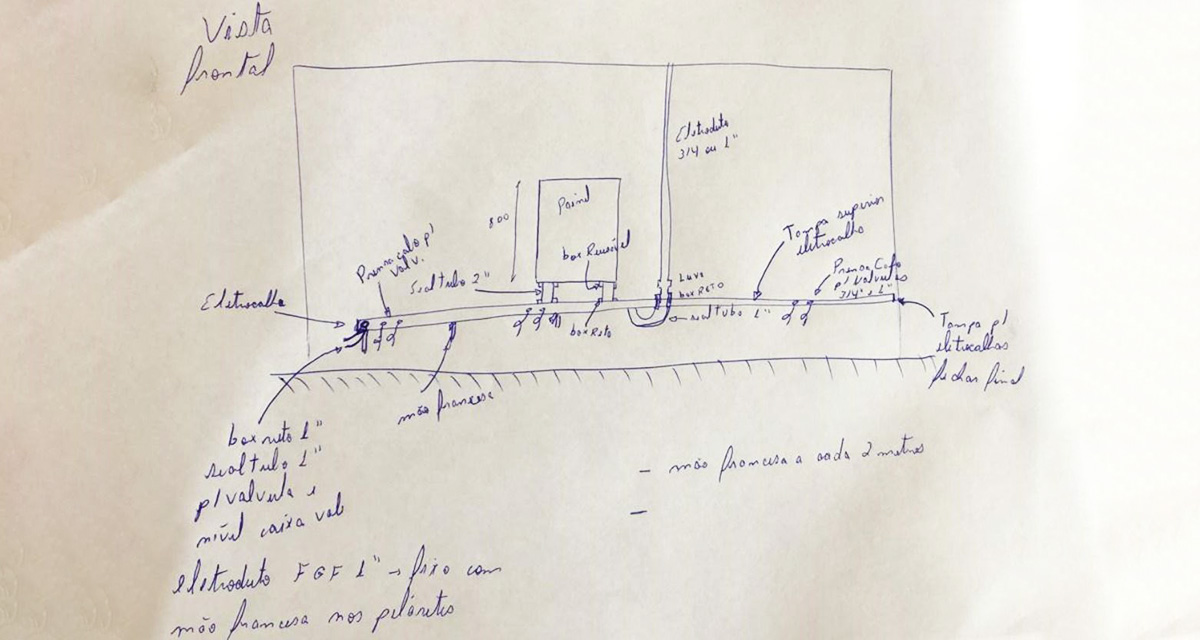 Vista
frontal
Eletroduto
3/4 ou 1"
Painel
800
box Reusável
Tampa superior
eletrocalha
Prensa cabo p/
valv.
Sealtubo 2"
Prensa Cabo
p/ valvulas
3/4" e 1"
Luva
box RETO
Eletrocalha
sealtubo 1"
box Reto
Tampa p/
eletrocalhas
fechar final
mão francesa
box reto 1"
sealtubo 1"
p/ valvula e
nível caixa
- mão francesa a cada 2 metros
-
eletroduto FGF 1" → fixo com
mão francesa nos pilaretes